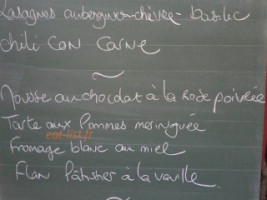 Lasagnes aubergines-chèvre-basilic
chili con carne
~
Mousse au chocolat à la Rose poivrée
Tarte aux Pommes meringuée
eat-list.fr
Fromage blanc au miel
Flan Pâtissier à la vanille